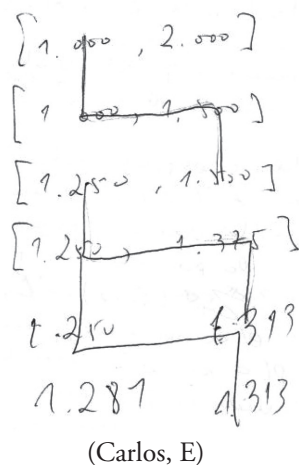 [1.000 , 2.000]
[1.000, 1.500]
[1.250 , 1.500]
[1.250, 1.375]
1.250 1.313
1.281 1.313
(Carlos, E)